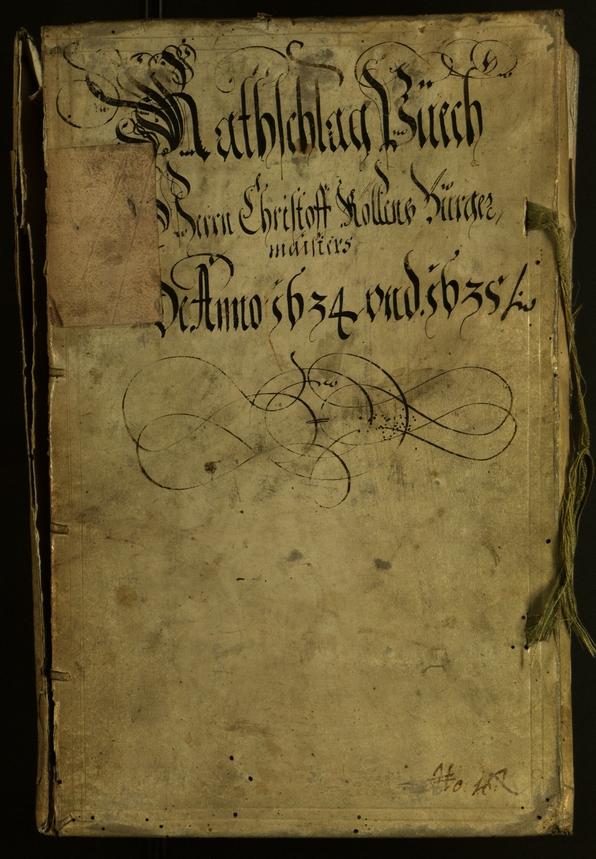 Rathschlag Büech
Herrn Christoff Rollens Bürger,
maisters
De Anno 1634 vnd. 1635
No